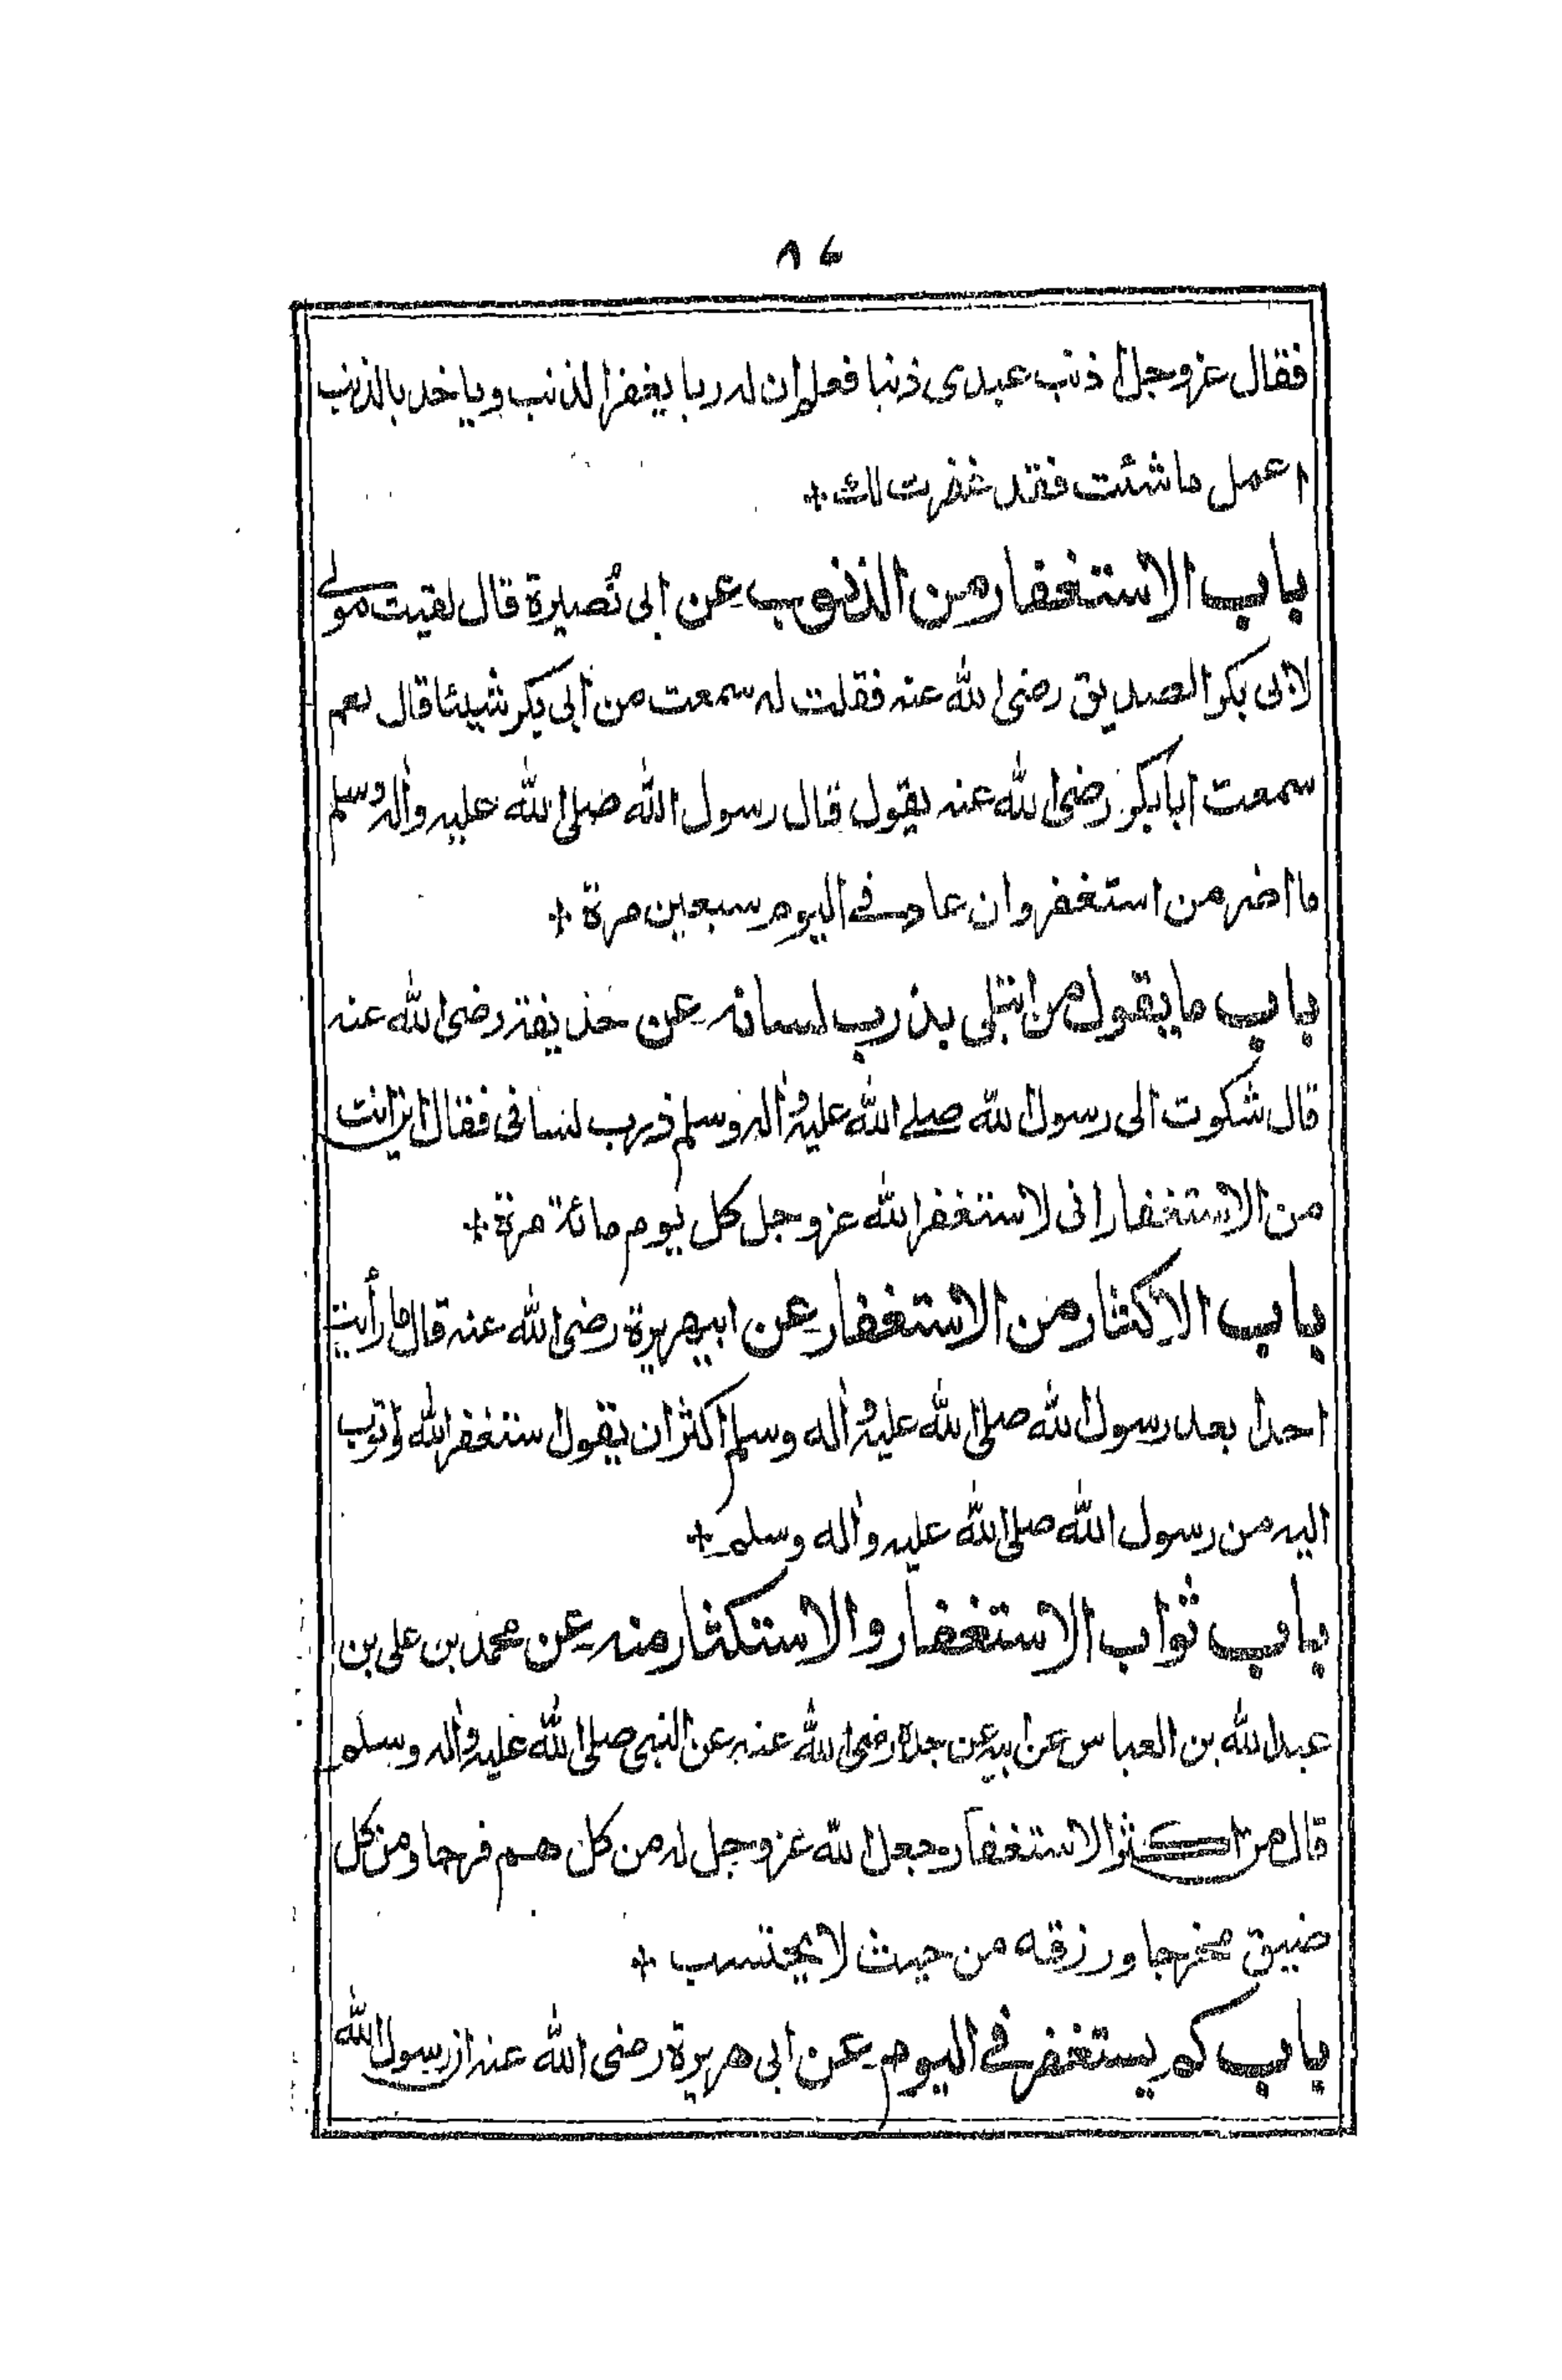 ٨٤
فقال عزوجل اذنب عبدى ذنبا فعلم ان له ربا يغفر الذنب وياخذ بالذنب
اعمل ماشئت فقد غفرت لك+
باب الاستغفار من الذنوب عن ابى نُصيرة قال لقيت مولى
لابى بكر الصديق رضى الله عنه فقلت له سمعت من ابى بكر شيئا قال نعم
سمعت ابابكر رضى الله عنه يقول قال رسول الله صلى الله عليه واله وسلم
ما اضر من استغفر وان عاد فى اليوم سبعين مرة +
باب ما يقول من ابتلى بذرب لسانه عن حذيفة رضى الله عنه
قال شكوت الى رسول الله صلے الله عليه واله وسلم ذرب لسانى فقال اين انت
من الاستغفار انى لاستغفر الله عزوجل كل يوم مائة مرة+
باب الاكثار من الاستغفار عن ابيهريرة رضى الله عنه قال ما رأيت
احدا بعد رسول الله صلى الله عليه واله وسلم اكثر ان يقول استغفر الله واتوب
اليه من رسول الله صلى الله عليه واله وسلم+
باب ثواب الاستغفار والاستكثار منه عن محمد بن على بن
عبد الله بن العباس عن ابيه عن جده رضى الله عنه عن النبى صلى الله عليه واله وسلم
قال من اكثر الاستغفار جعل الله عزوجل له من كل هم فرجا ومن كل
ضيق مخرجا ورزقه من حيث لا يحتسب +
باب كم يستغفر فى اليوم عن ابى هريرة رضى الله عنه ان رسول الله